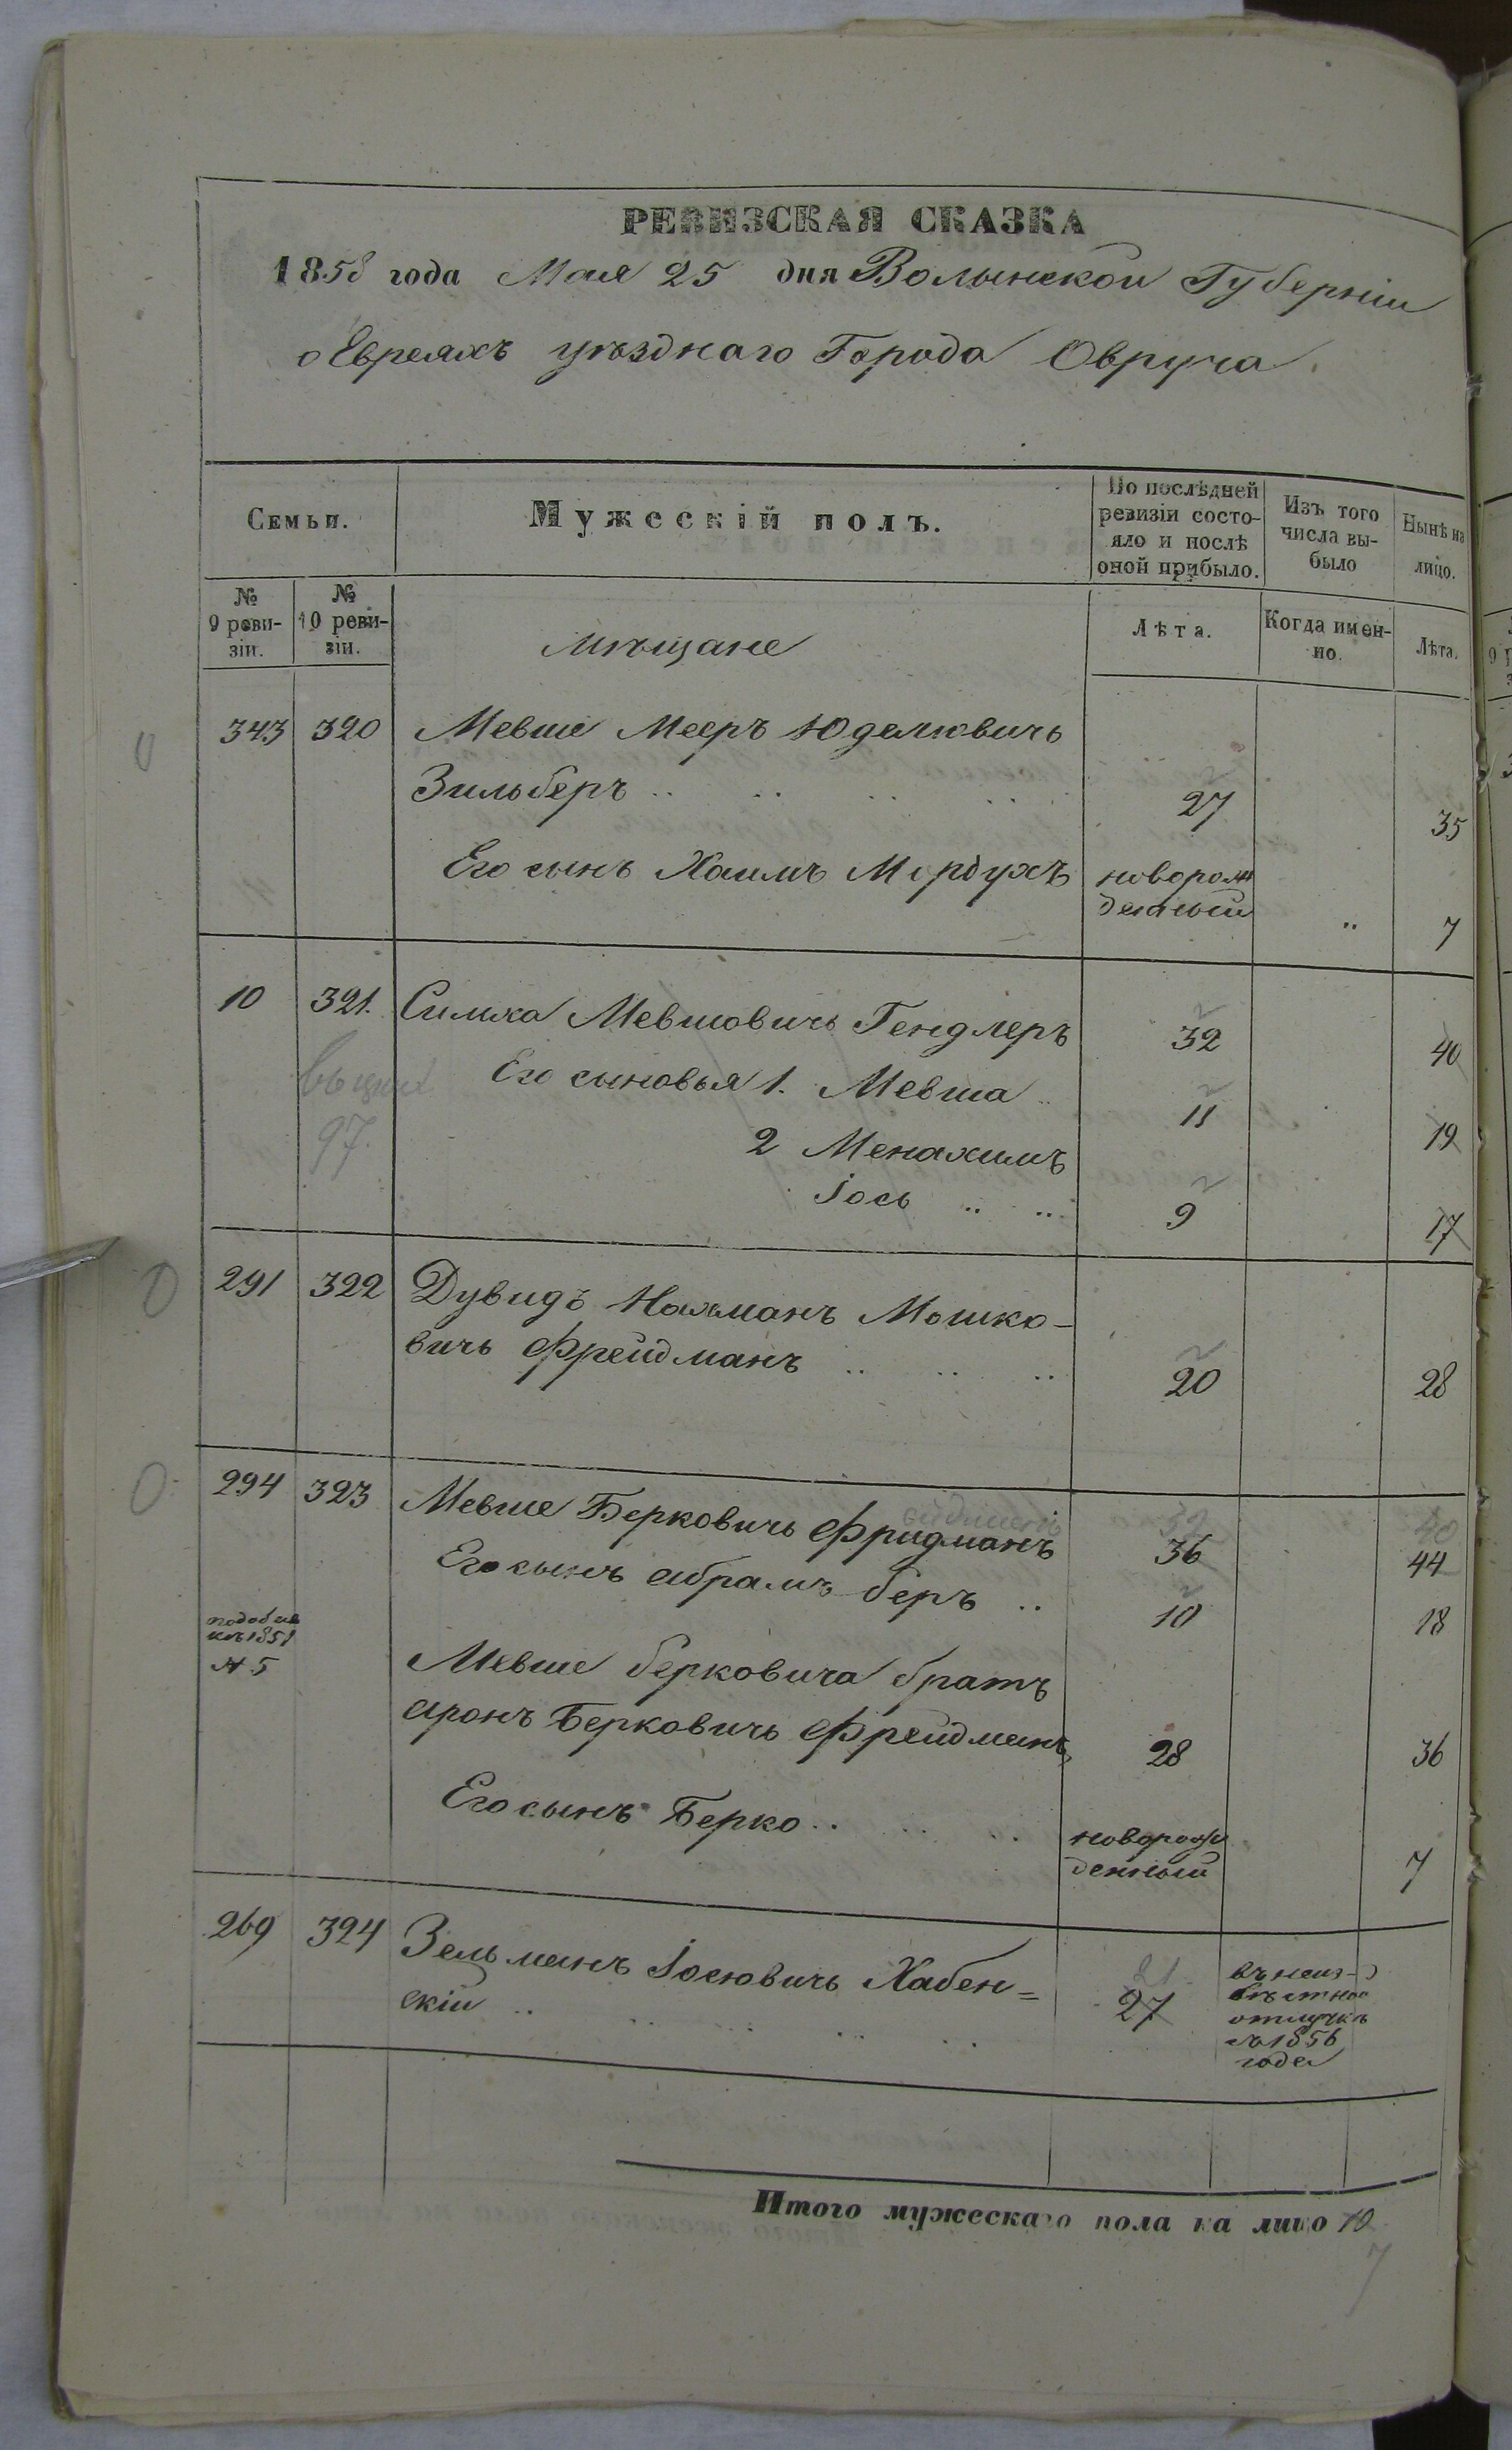 РЕВИЗСКАЯ СКАЗКА
1858 года Мая 25 дня Волынской Губерніи
о Евреяхъ уѣзднаго Города Овруча
Семьи.
Мужескій полъ.
По послѣдней ревизіи состояло и послѣ оной прибыло.
Изъ того числа выбыло
Нынѣ на лицо.
№ 9 ревизіи.
№ 10 ревизіи.
мѣщане
Лѣта.
Когда именно.
Лѣта.
343 320 Мевше Мееръ Юделювичь
Зильберъ .. .. .. .. 27 35
Его сынъ Хаимъ Мордухъ новорож
денный .. 7
10 321. Симха Мевшовичь Гендлеръ 32 40
Его сыновья 1. Мевша .. 11 19
97.
2 Менахимъ
Іось .. .. 9 17
291 322 Дувидъ Нахманъ Мошко-
вичь Фрейдманъ .. .. .. 20 28
294 323 Мевше Берковичь Фридманъ 32 36 40 44
Его сынъ Абрамъ Беръ .. 10 18
1851
№ 5
Мевше Берковича братъ
Аронъ Берковичь Фрейдманъ 28 36
Его сынъ Берко .. .. .. новорож
денный 7
269 324 Зельманъ Іосювичь Хабен=
скій .. .. .. .. 21. 27 въ неиз-
вѣстной
отлучкѣ
съ 1856
года
Итого мужескаго пола на лицо 10
7